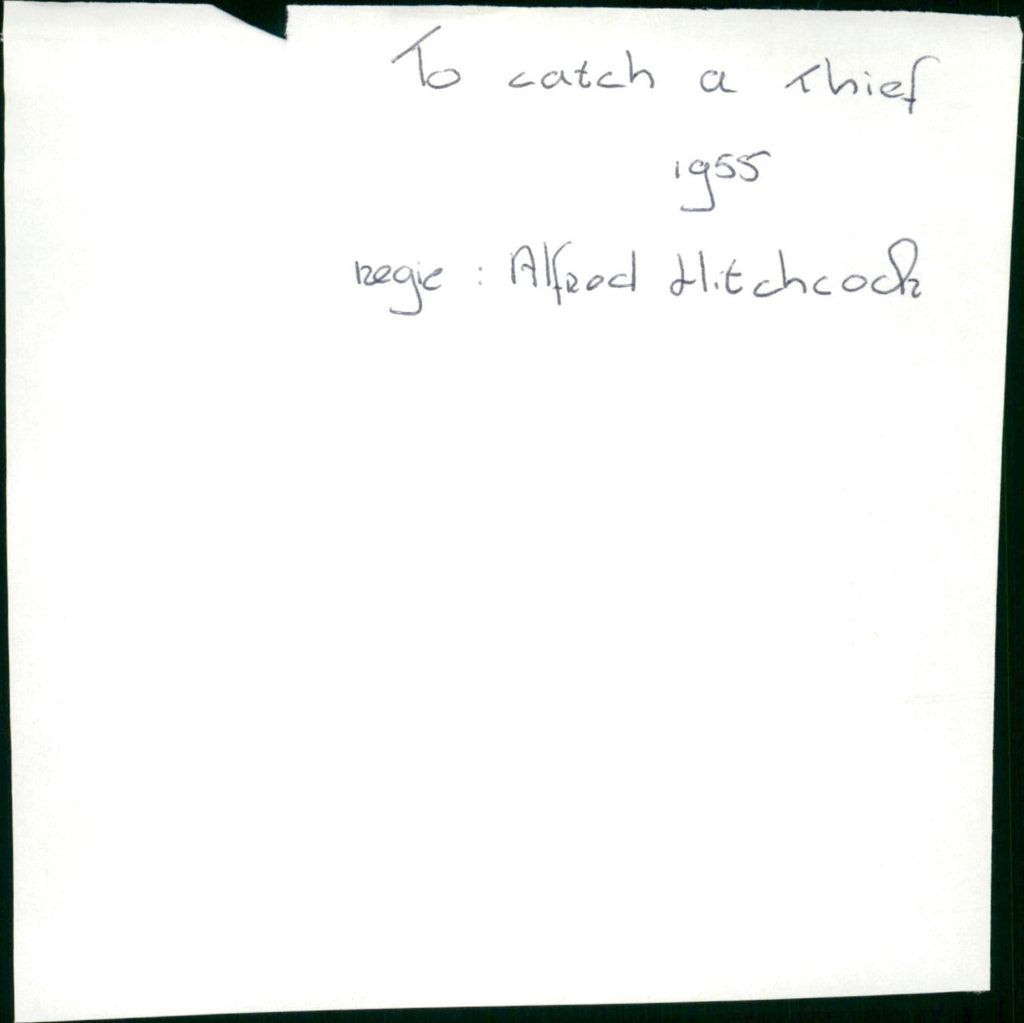 To catch a thief
1955
regie : Alfred Hitchcock